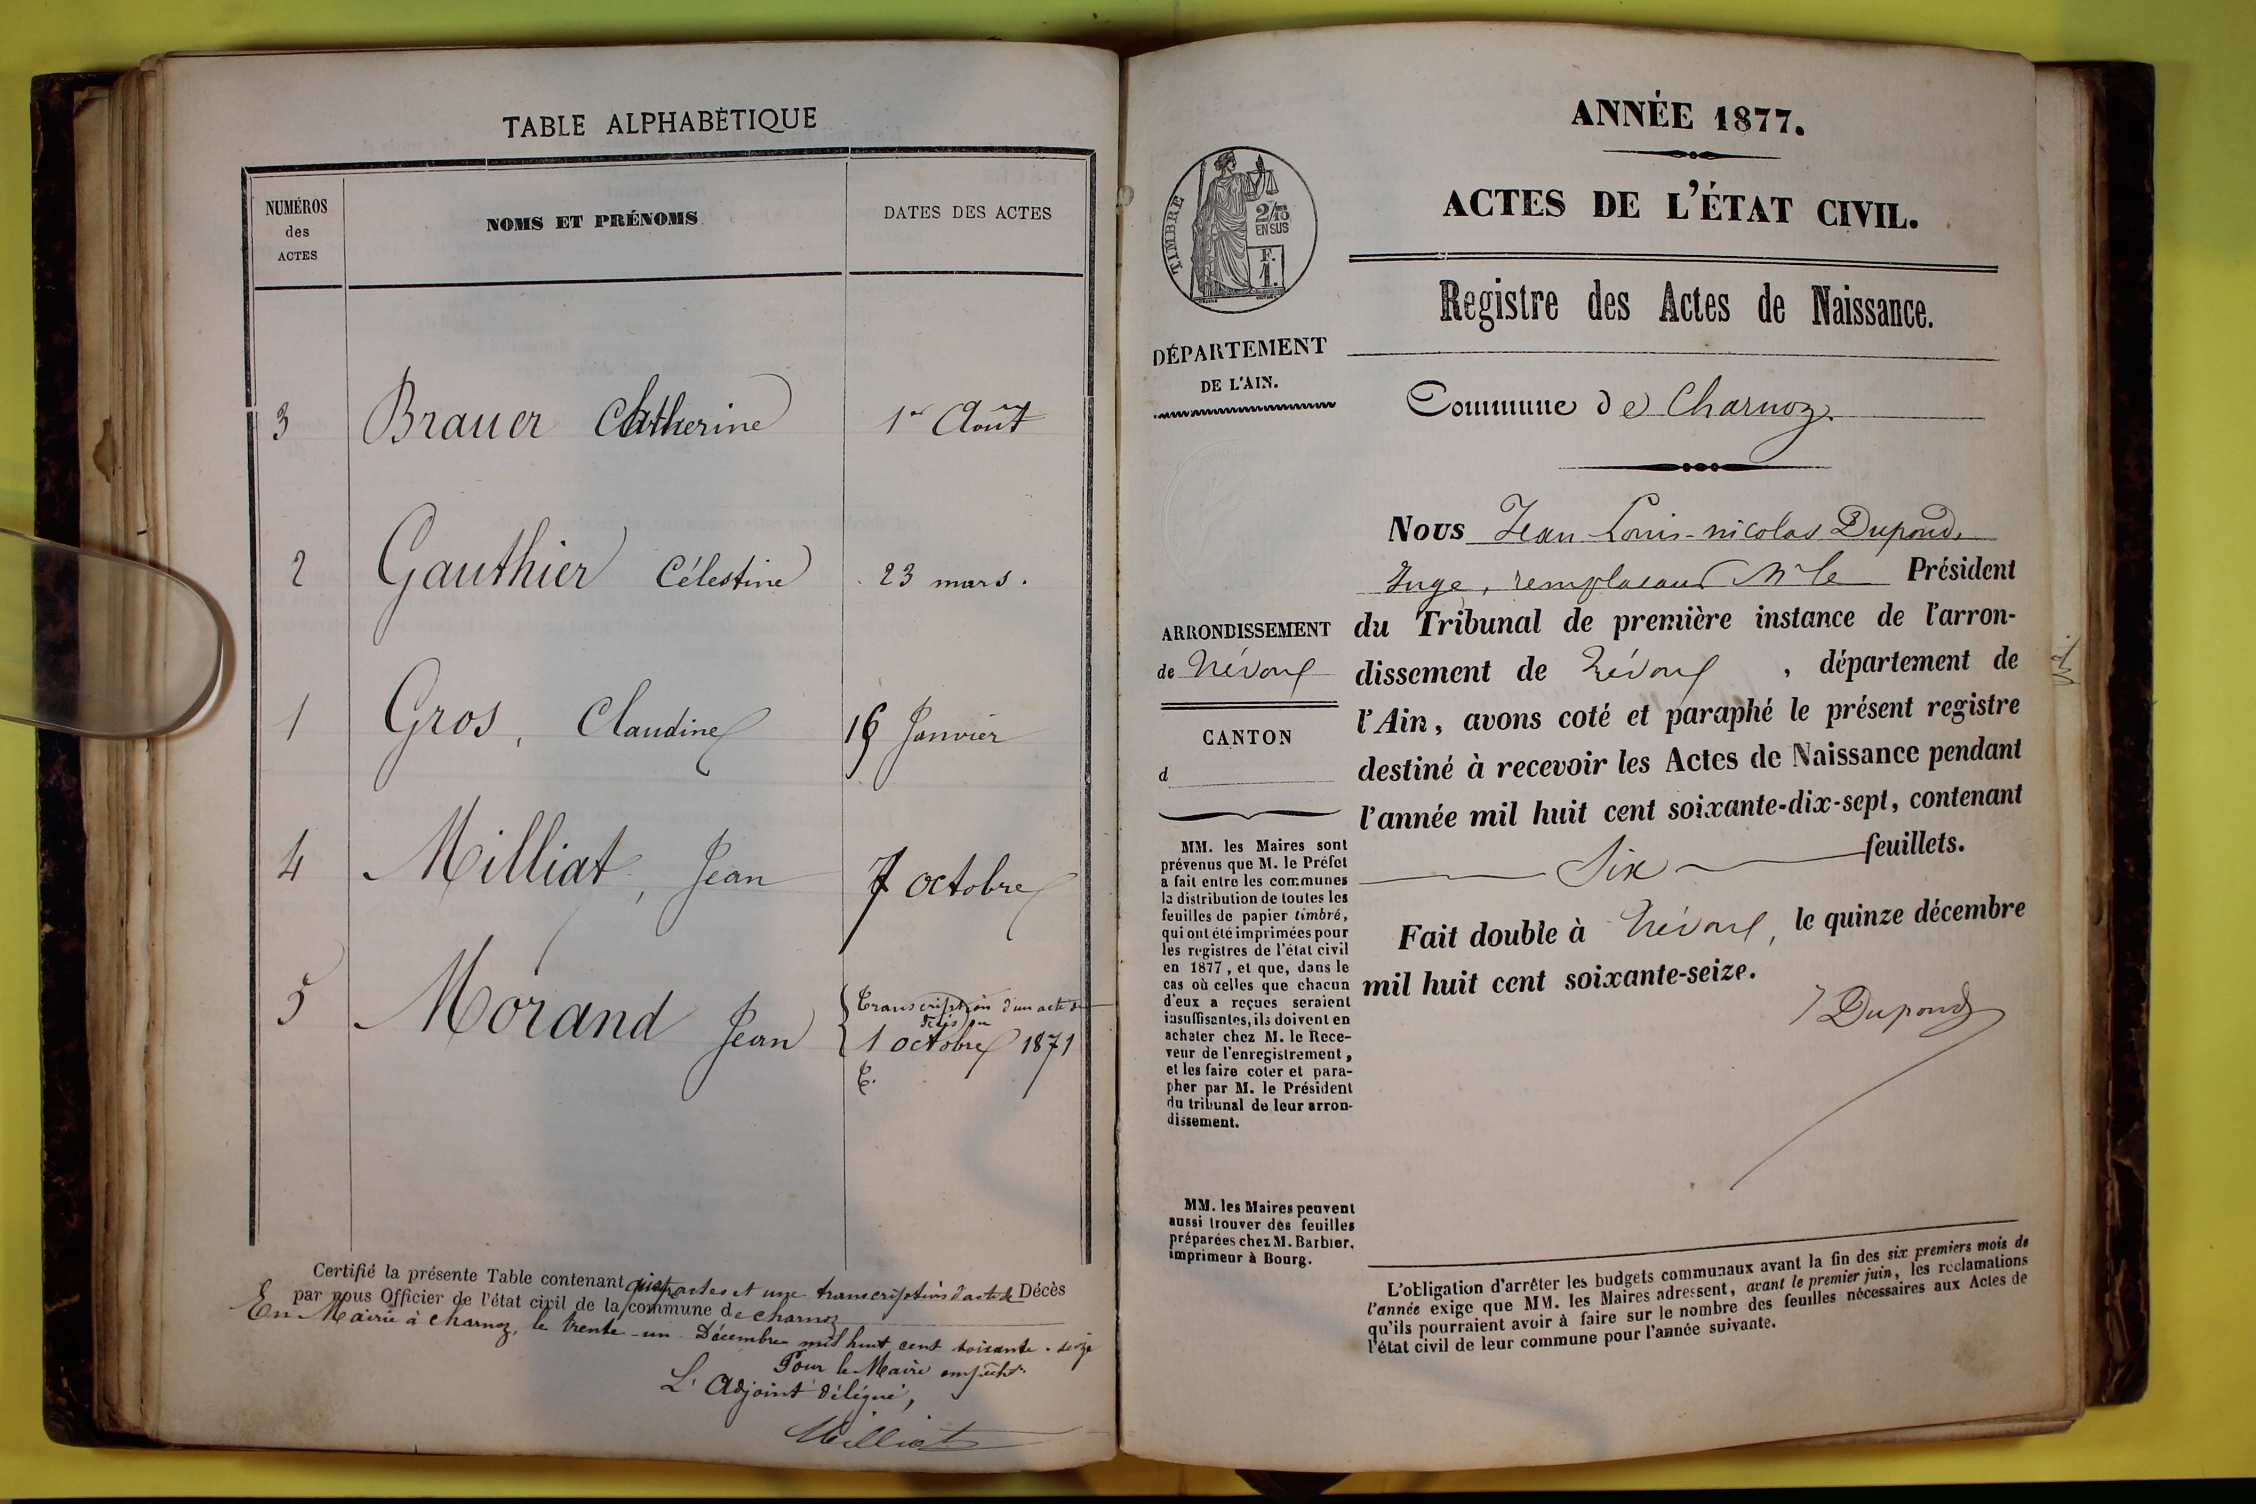 TABLE ALPHABÉTIQUE
NUMÉROS des ACTES
NOMS ET PRÉNOMS
DATES DES ACTES
3 Brauer Catherine 1er Août
2 Gauthier Célestine 23 mars.
1 Gros, Claudine Janvier
4 Milliat, Jean 7 octobre
5 Morand Jean
Transcription d'un acte de
décès du
1 octobre 1871
Certifié la présente Table contenant actes et une transcription d'acte de Décès
par nous Officier de l'état civil de la commune de charnoz
En Mairie à charnoz, le trente-un Décembre mil huit cent soixante-seize
Pour le Maire empêché
L'Adjoint délégué,
Milliat
ANNÉE 1877.
ACTES DE L'ÉTAT CIVIL.
Registre des Actes de Naissance.
TIMBRE
2/10
EN SUS
F.
1.
DÉPARTEMENT
DE L'AIN.
Commune de Charnoz
Nous Jean Louis-nicolas Dupond,
Juge, remplaçant Mr le Président
du Tribunal de première instance de l'arron-
dissement de Trévoux, département de
l'Ain, avons coté et paraphé le présent registre
destiné à recevoir les Actes de Naissance pendant
l'année mil huit cent soixante-dix-sept, contenant
Six feuillets.
Fait double à Trévoux, le quinze décembre
mil huit cent soixante-seize.
J Dupond
ARRONDISSEMENT
de Trévoux
CANTON
d
MM. les Maires sont
prévenus que M. le Préfet
a fait entre les communes
la distribution de toutes les
feuilles de papier timbré,
qui ont été imprimées pour
les registres de l'état civil
en 1877, et que, dans le
cas où celles que chacun
d'eux a reçues seraient
insuffisantes, ils doivent en
acheter chez M. le Rece-
veur de l'enregistrement,
et les faire coter et para-
pher par M. le Président
du tribunal de leur arron-
dissement.
MM. les Maires peuvent
aussi trouver des feuilles
préparées chez M. Barbier,
imprimeur à Bourg.
L'obligation d'arrêter les budgets communaux avant la fin des six premiers mois de
l'année exige que MM. les Maires adressent, avant le premier juin, les réclamations
qu'ils pourraient avoir à faire sur le nombre des feuilles nécessaires aux Actes de
l'état civil de leur commune pour l'année suivante.